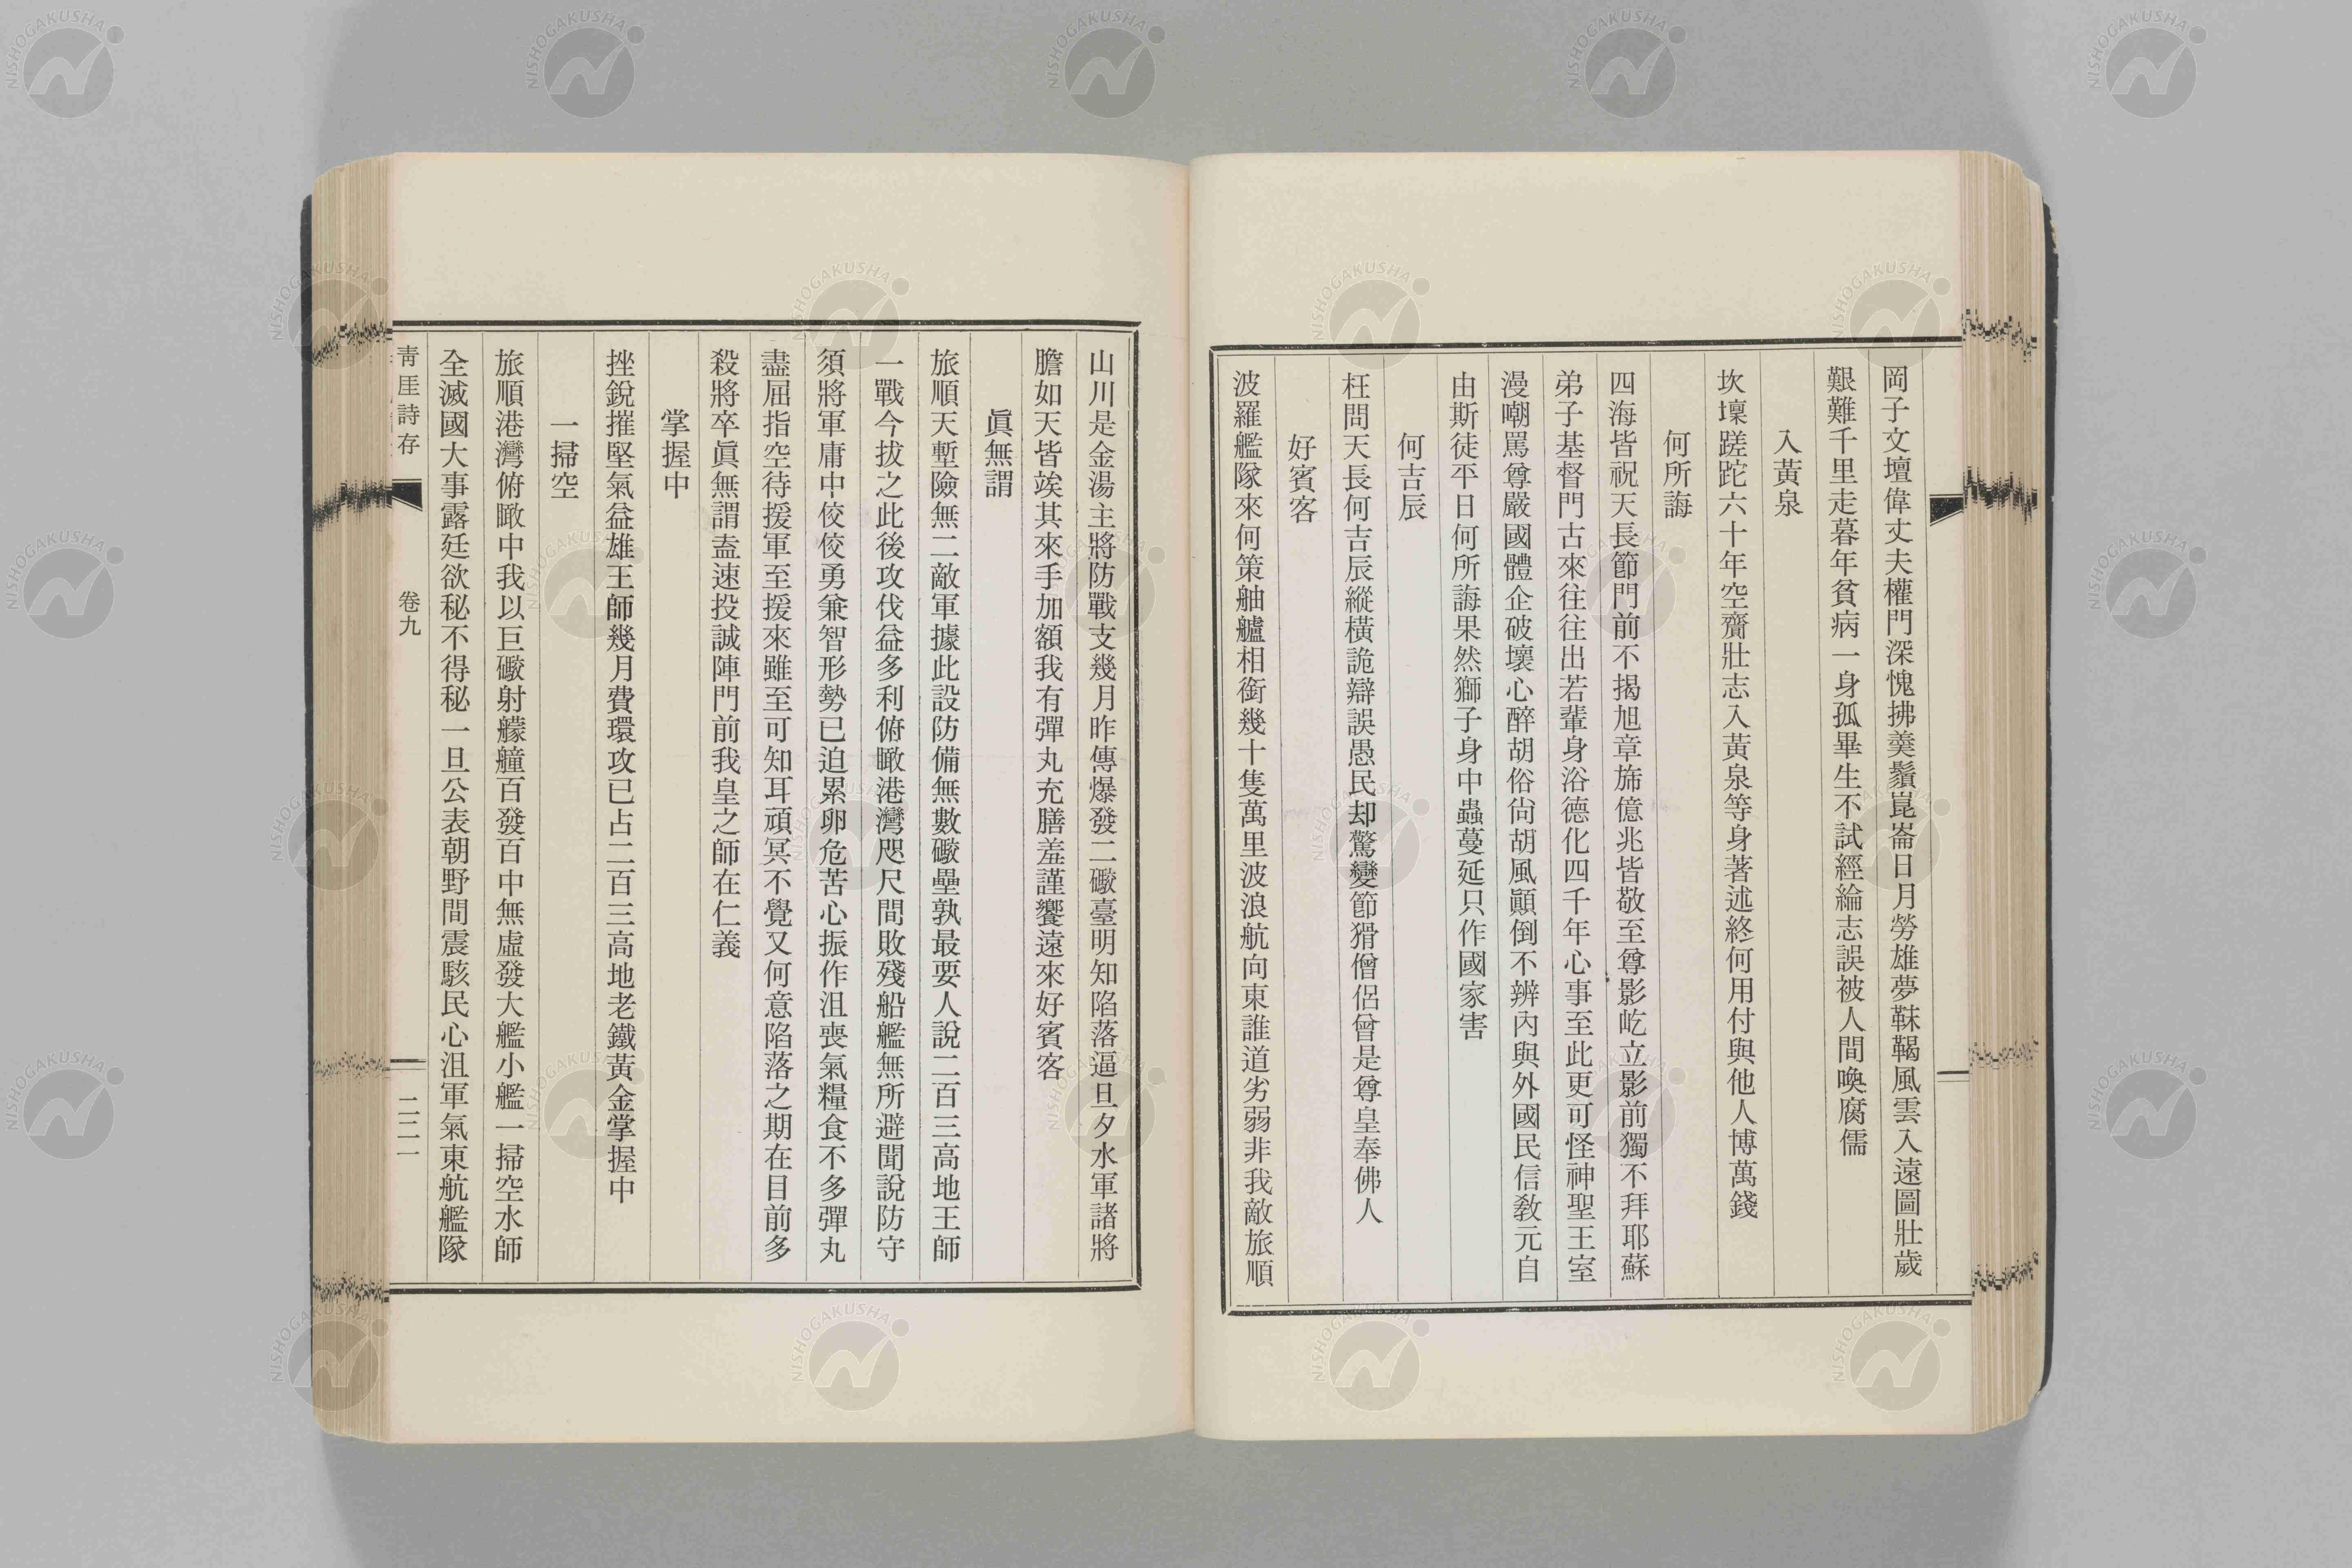 岡子文壇偉丈夫權門深愧拂羹鬚崑崙日月勞雄夢靺鞨風雲入遠圖壯歲
艱難千里走暮年貧病一身孤畢生不試經綸志誤被人間喚腐儒
入黃泉
坎壈蹉跎六十年空齎壯志入黃泉等身著述終何用付與他人博萬錢
何所誨
四海皆祝天長節門前不揭旭章旆億兆皆敬至尊影屹立影前獨不拜耶蘇
弟子基督門古來往往出若輩身浴德化四千年心事至此更可怪神聖王室
漫嘲罵尊嚴國體企破壞心醉胡俗尙胡風顚倒不辨內與外國民信敎元自
由斯徒平日何所誨果然獅子身中蟲蔓延只作國家害
何吉辰
枉問天長何吉辰縱橫詭辯誤愚民却驚變節猾僧侶曾是尊皇奉佛人
好賓客
波羅艦隊來何策舳艫相銜幾十隻萬里波浪航向東誰道劣弱非我敵旅順
山川是金湯主將防戰支幾月昨傳爆發二礮臺明知陷落逼旦夕水軍諸將
膽如天皆竢其來手加額我有彈丸充膳羞謹饗遠來好賓客
眞無謂
旅順天塹險無二敵軍據此設防備無數礮壘孰最要人說二百三高地王師
一戰今拔之此後攻伐益多利俯瞰港灣咫尺間敗殘船艦無所避聞說防守
須將軍庸中佼佼勇兼智形勢已迫累卵危苦心振作沮喪氣糧食不多彈丸
盡屈指空待援軍至援來雖至可知耳頑冥不覺又何意陷落之期在目前多
殺將卒眞無謂盍速投誠陣門前我皇之師在仁義
掌握中
挫銳摧堅氣益雄王師幾月費環攻已占二百三高地老鐵黃金掌握中
一掃空
旅順港灣俯瞰中我以巨礮射艨艟百發百中無虛發大艦小艦一掃空水師
全滅國大事露廷欲秘不得秘一旦公表朝野間震駭民心沮軍氣東航艦隊
靑厓詩存
卷九
二二一
NISHOGAKUSHA